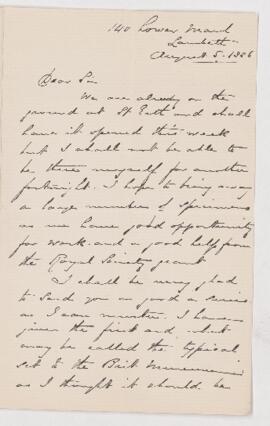 140 Lower Marsh
Lambeth
August 5. 1886
Dear Sir
We are already on the
ground at St and shall
have it opened this week
but I shall not be able to
be there myself for another
fortnight. I hope to bring away
a large number of specimens
as we have good opportunity
for work and a good help from
the Royal Society grant
I shall be very glad
to send you as good a series
as I can muster. I have
given the first and what
may be called the typical
set to the Brit Museum
as I thought it should be